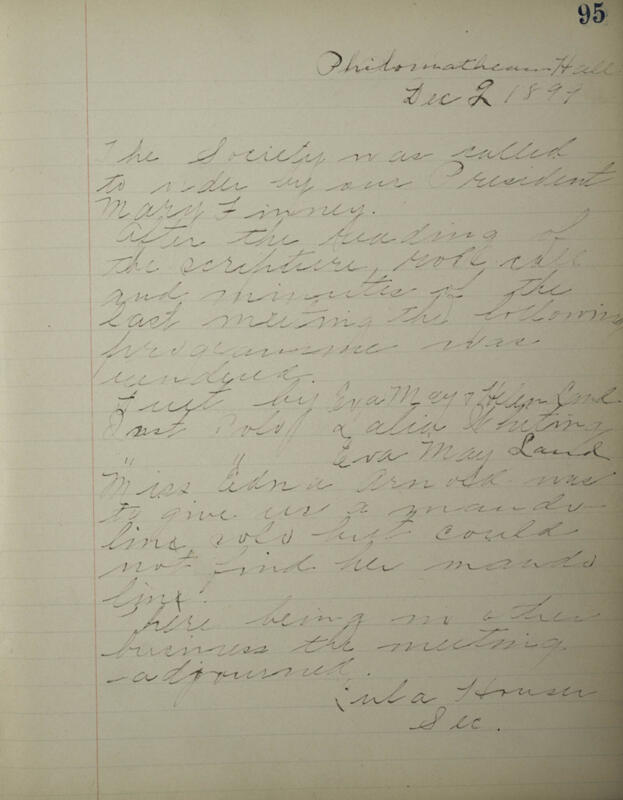 95
Philomathean Hall
Dec 2 1897
The Society was called
to order by our President
Mary Finney.
After the reading of
the scripture, roll call
and minutes of the
last meeting the following
programme was
rendered.
Duet by Eva May & Helen Land
Inst Solo Lalia Whiting
" " Eva May Land
Miss Edna Arnold was
to give us a mando
line solo but could
not find her mando
line.
There being no other
business the meeting
adjourned.
Lula Houser
Sec.